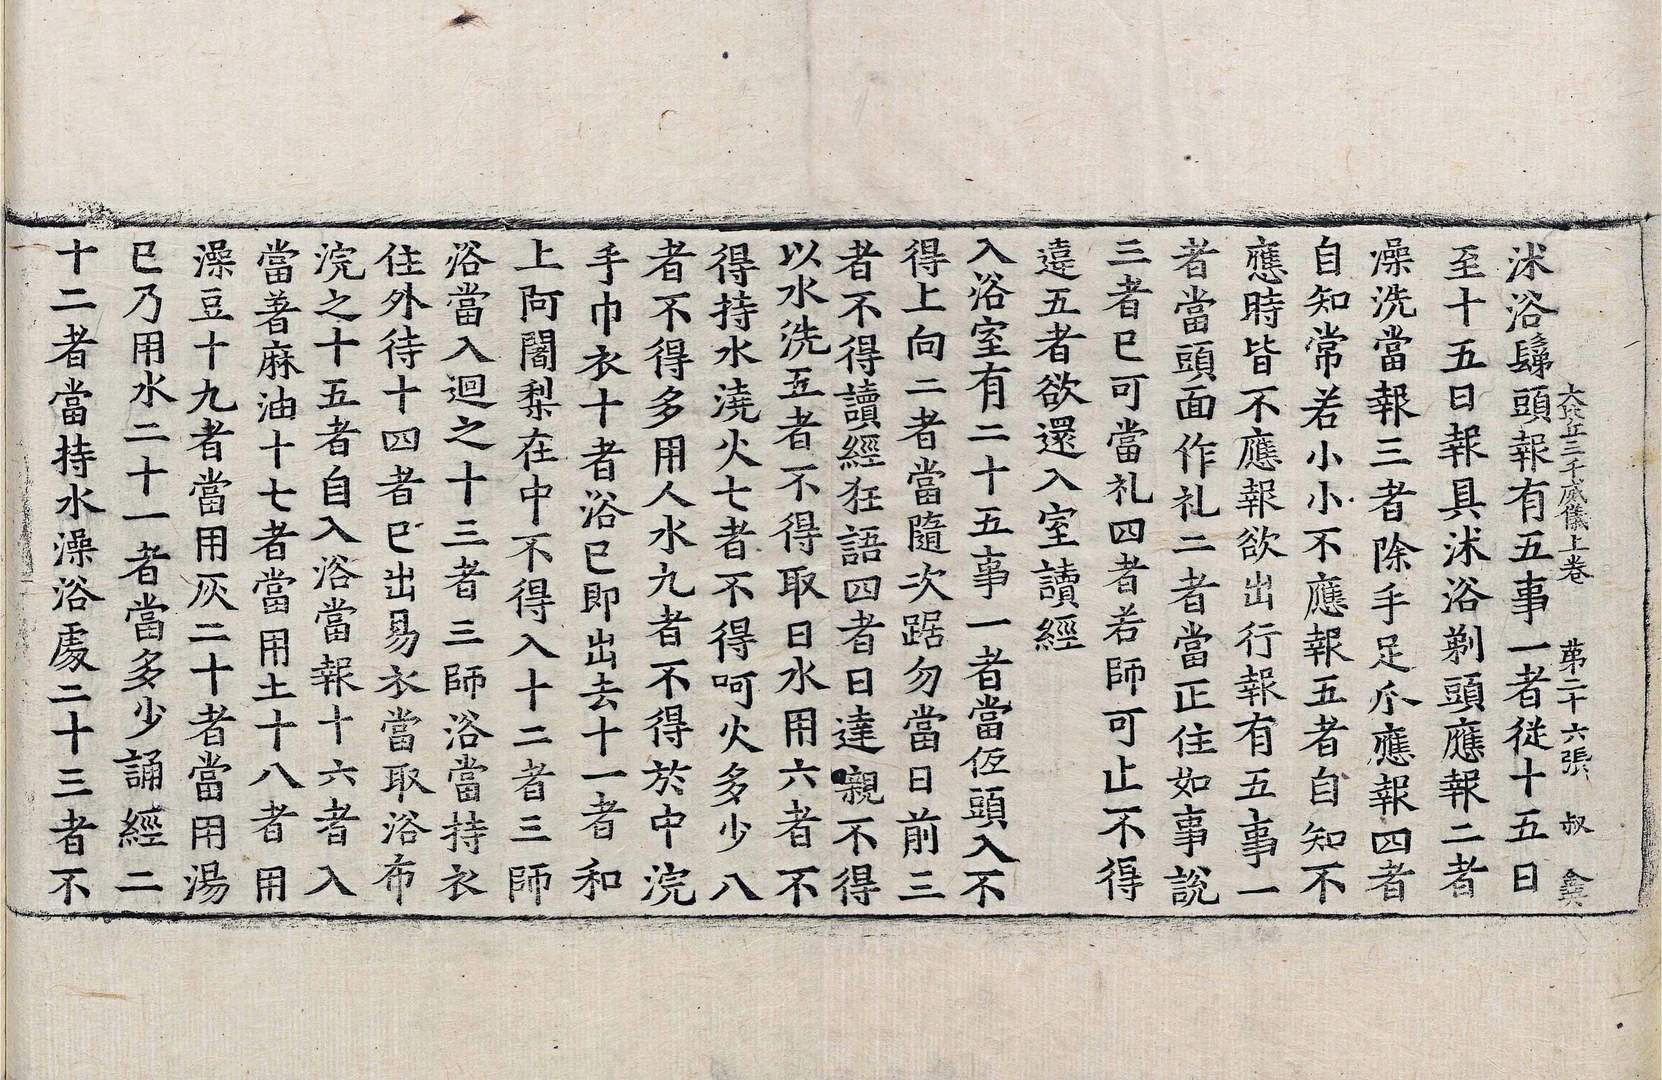 大比丘三千威儀上卷 第二十六張 叔
沭浴鬄頭報有五事一者從十五日
至十五日報具沭浴剃頭應報二者
澡洗當報三者除手足爪應報四者
自知常若小小不應報五者自知不
應時皆不應報欲出行報有五事一
者當頭面作礼二者當正住如事說
三者已可當礼四者若師可止不得
違五者欲還入室讀經
入浴室有二十五事一者當低頭入不
得上向二者當隨次踞勿當日前三
者不得讀經狂語四者日達嚫不得
以水洗五者不得取日水用六者不
得持水澆火七者不得呵火多少八
者不得多用人水九者不得於中浣
手巾衣十者浴已即出去十一者和
上阿闍梨在中不得入十二者三師
浴當入迴之十三者三師浴當持衣
住外待十四者已出易衣當取浴布
浣之十五者自入浴當報十六者入
當著麻油十七者當用土十八者用
澡豆十九者當用灰二十者當用湯
已乃用水二十一者當多少誦經二
十二者當持水澡浴處二十三者不